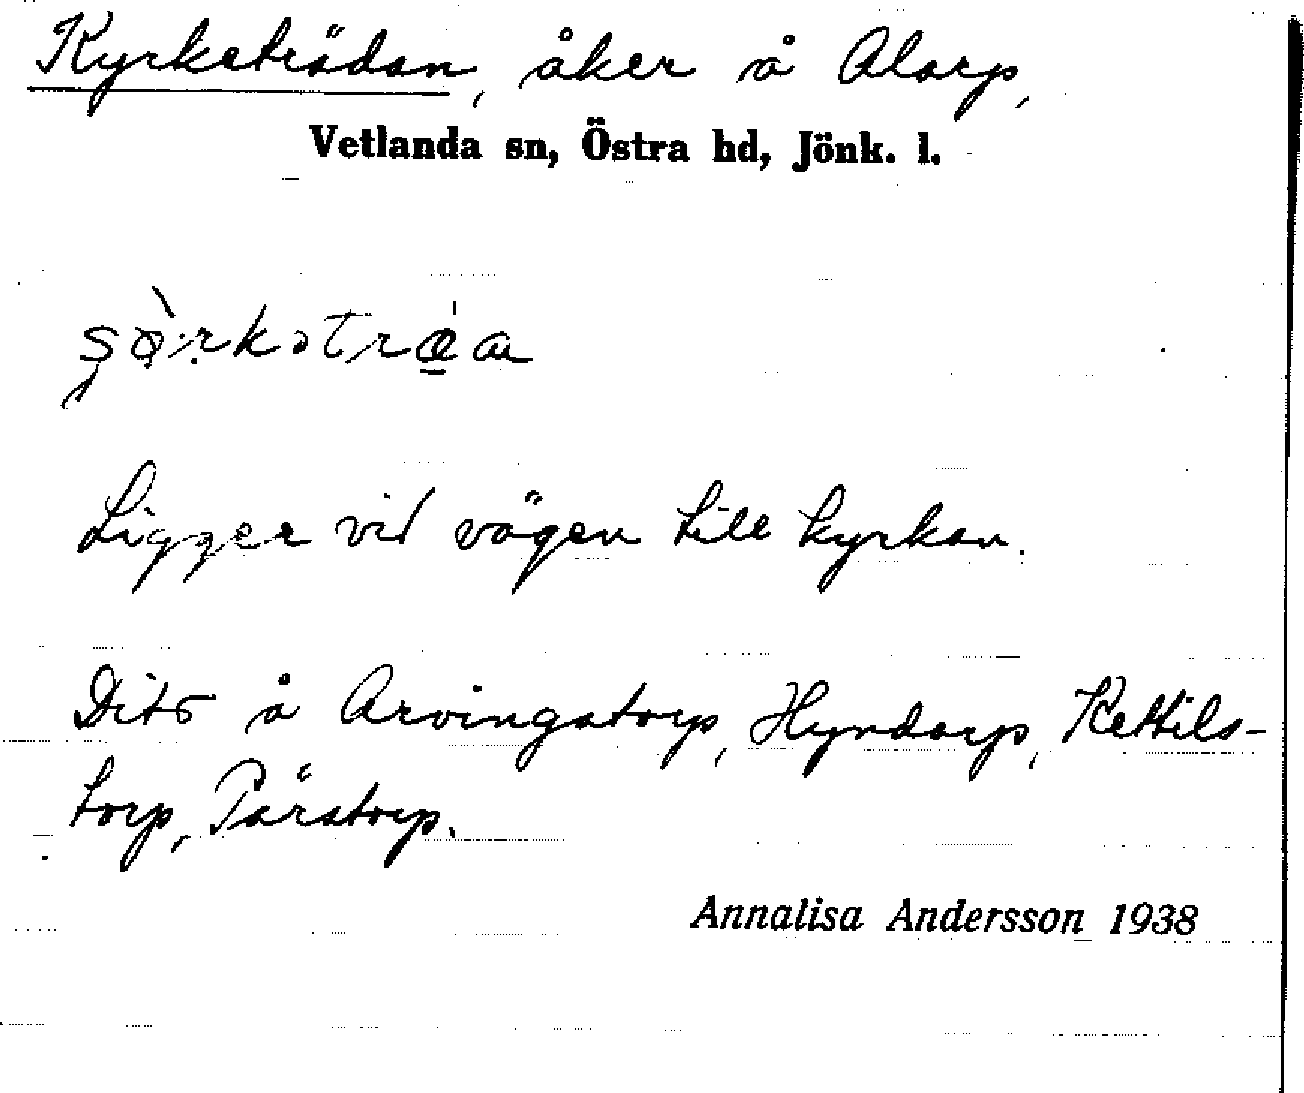 Kyrketrädan, åker å Alarp,
Vetlanda sn, Östra hd, Jönk. l.
Ligger vid vägen till kyrkan.
Dito å Arvingstorp, Hyndarp, Kettils-
torp, Pärstorp.
Annalisa Andersson 1938